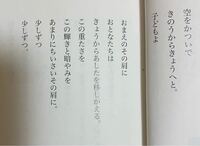 空をかついで
きのうからきょうへと。
子どもよ
おまえのその肩に
おとなたちは
きょうからあしたを移しかえる。
この重たさを
この輝きと暗やみを
あまりにちいさいその肩に。
少しずつ
少しずつ。